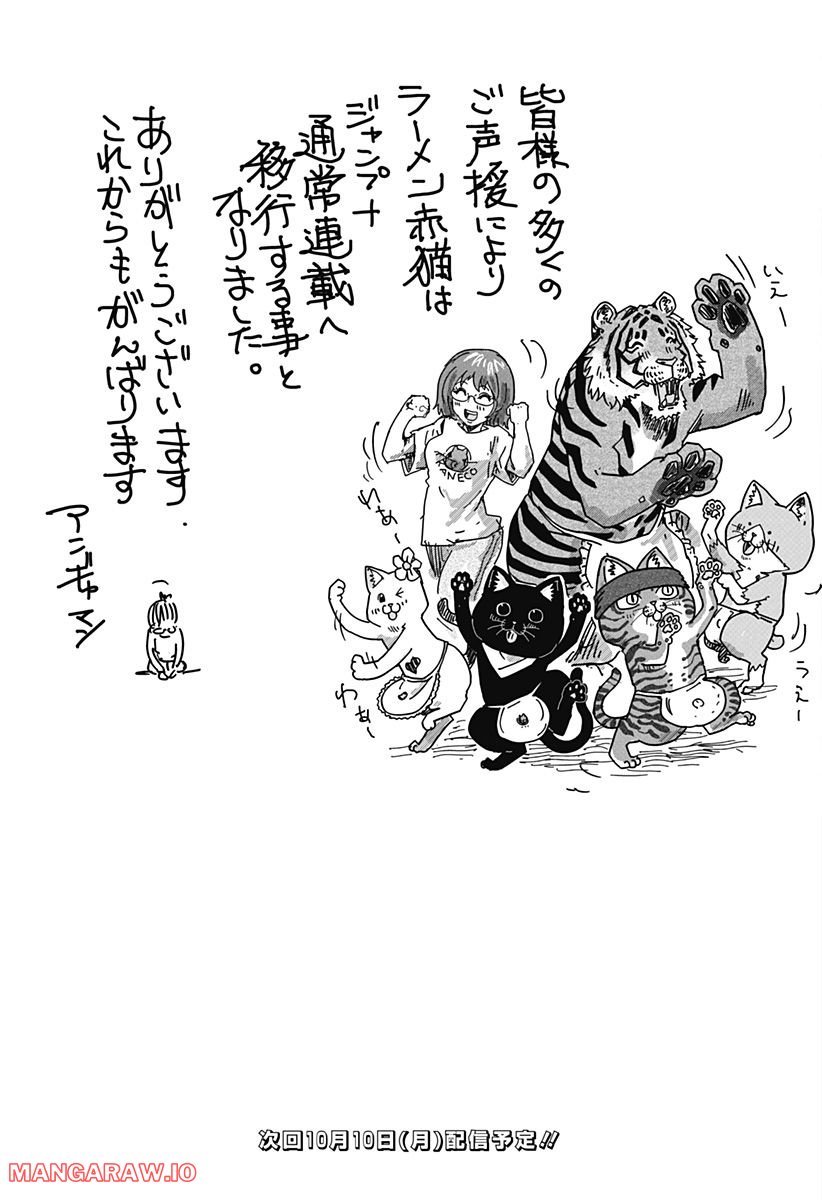 皆様の多くの
ご声援により
ラーメン赤猫は
ジャンプ+
通常連載へ
移行する事と
なりました。
ありがとうございます.
これからもがんばります
アンギャマン
いえー
わぁー
わぁー
うぇー
ANECO
次回10月10日(月)配信予定!!
MANGARAW.IO